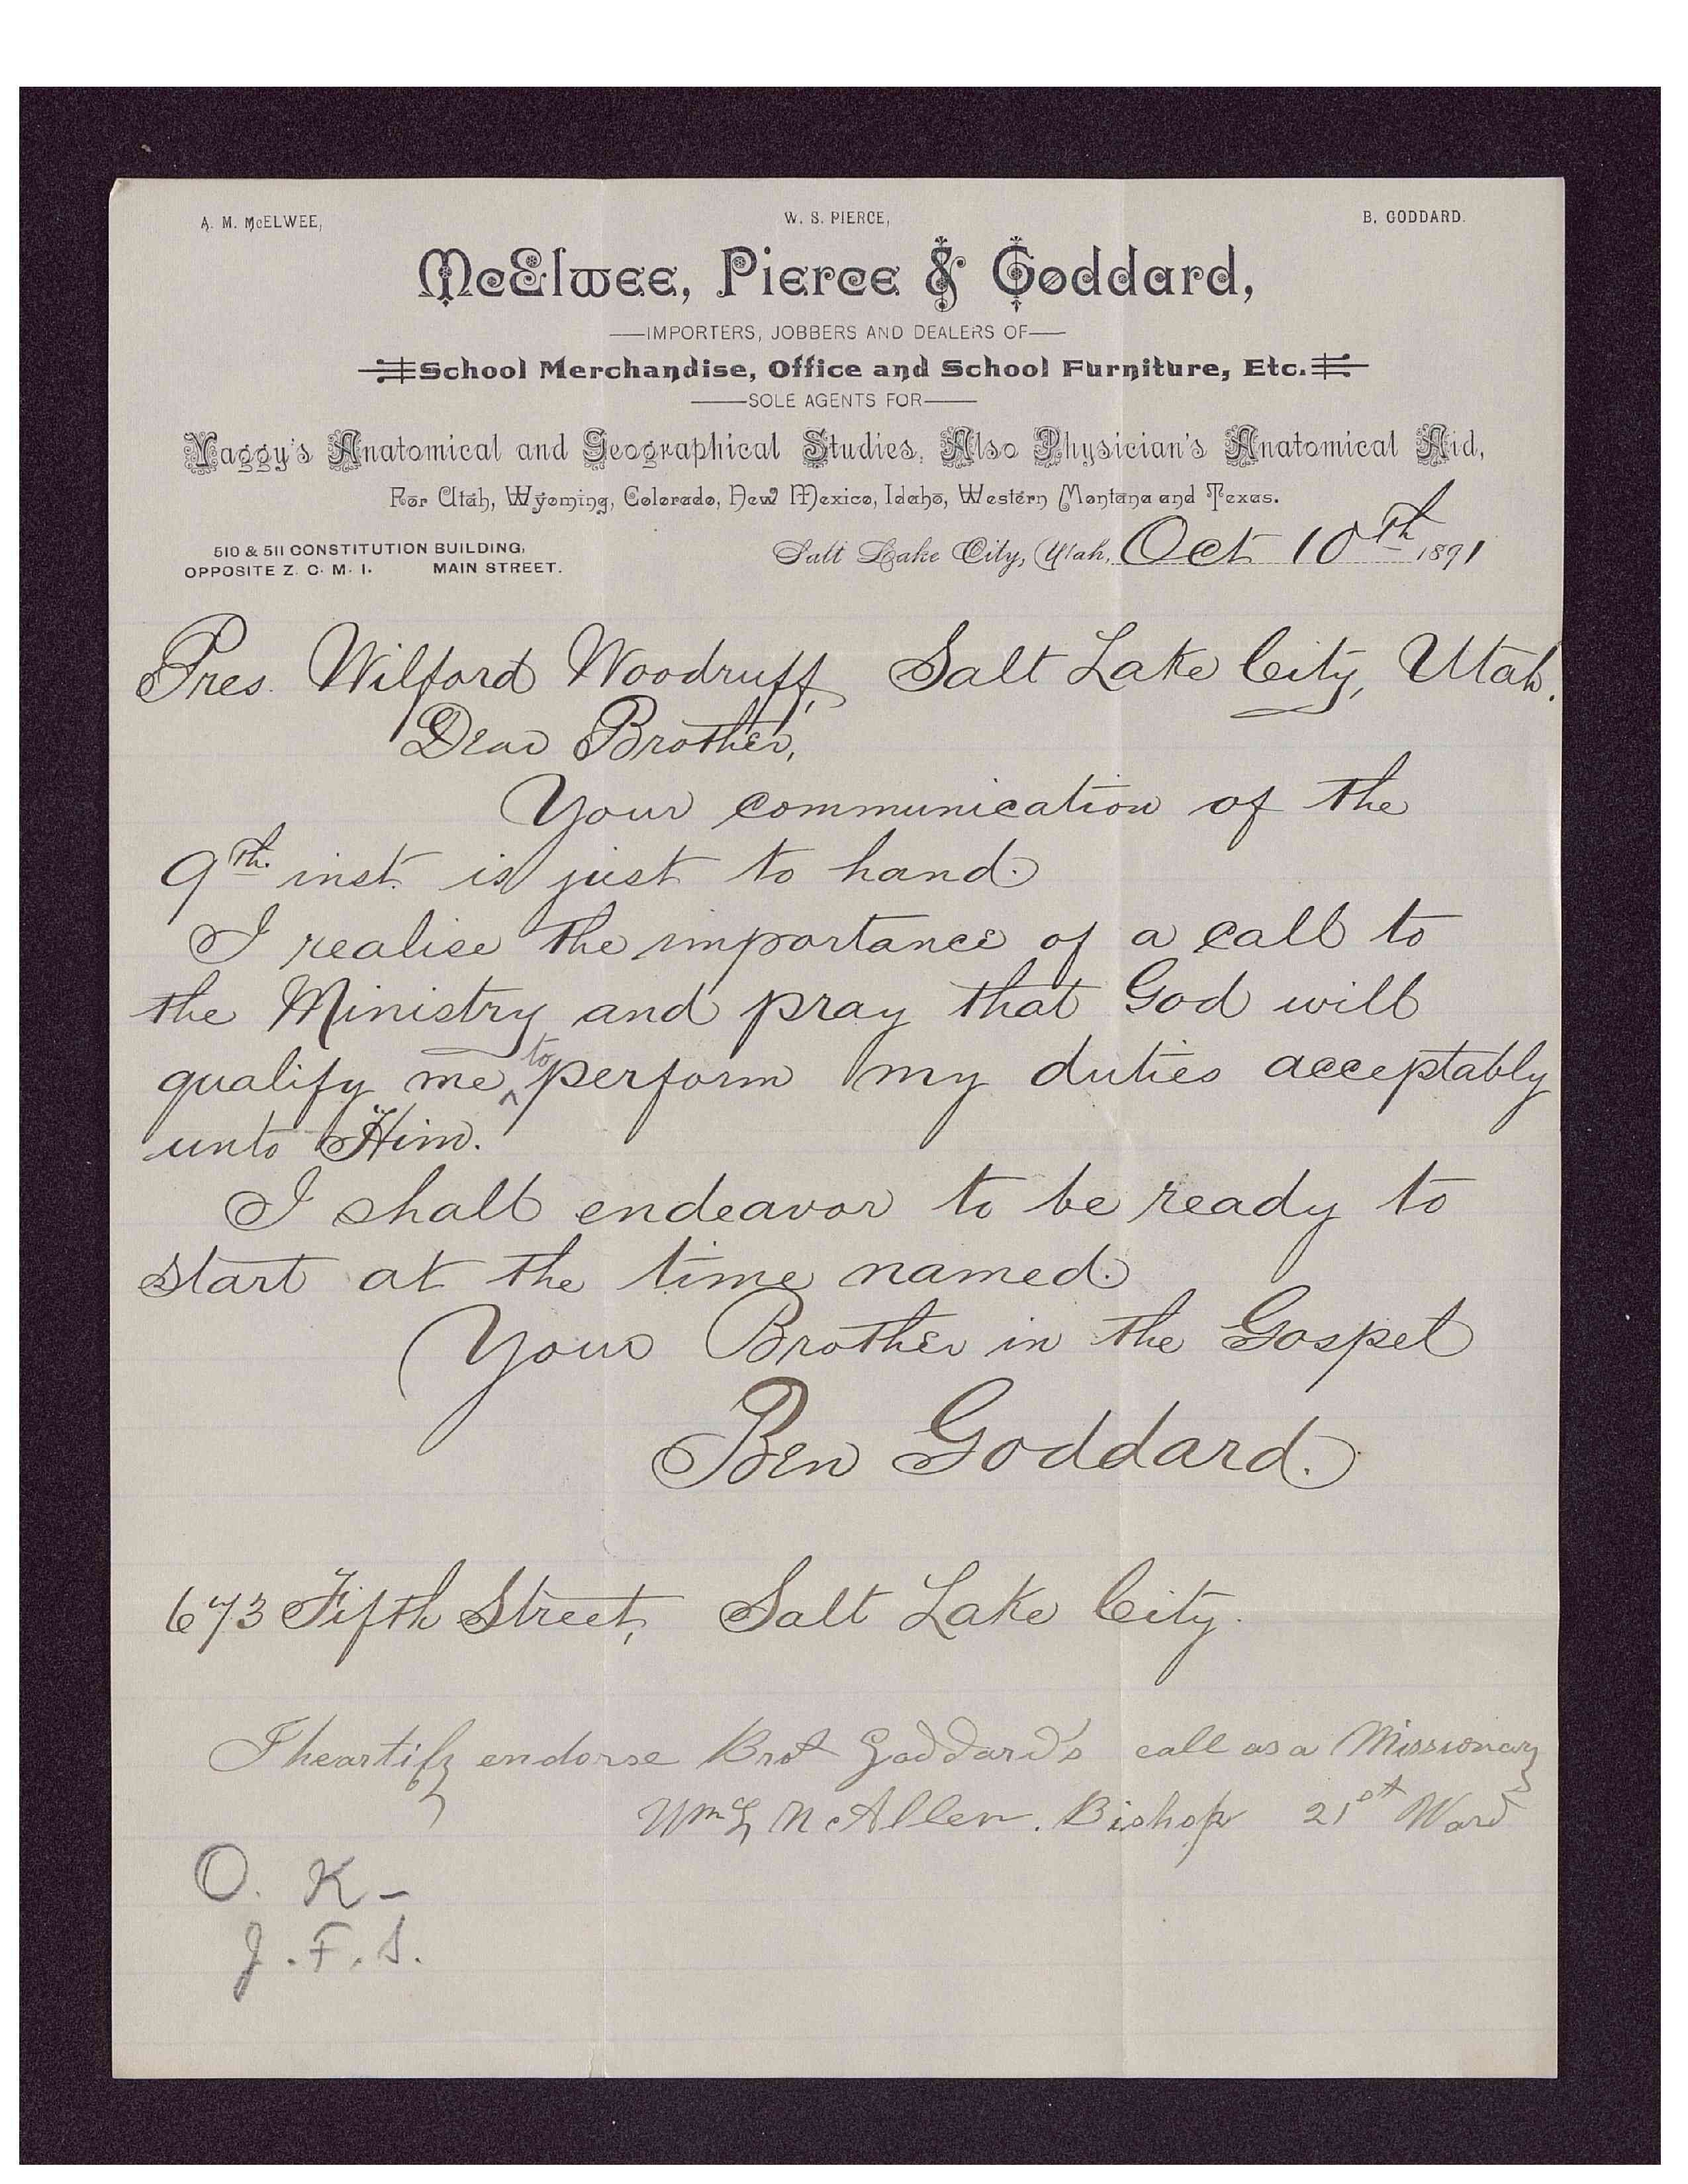 A. M. McELWEE, W. S. PIERCE, B. GODDARD.
McElwee, Pierce & Goddard,
—IMPORTERS, JOBBERS AND DEALERS OF—
School Merchandise, Office and School Furniture, Etc.
—SOLE AGENTS FOR—
Yaggy's Anatomical and Geographical Studies, Also Physician's Anatomical Aid,
For Utah, Wyoming, Colorado, New Mexico, Idaho, Western Montana and Texas.
510 & 511 CONSTITUTION BUILDING,
OPPOSITE Z. C. M. I. MAIN STREET.
Salt Lake City, Utah, Oct 10th 1891
Pres. Wilford Woodruff, Salt Lake City, Utah.
Dear Brother,
Your communication of the
9th. inst. is just to hand.
I realise the importance of a call to
the Ministry and pray that God will
qualify me ^to perform my duties acceptably
unto Him.
I shall endeavor to be ready to
start at the time named.
Your Brother in the Gospel
Ben Goddard.
673 Fifth Street, Salt Lake City.
I heartify endorse Brot Goddard's call as a Missionary
Wm L N cAllen. Bishop 21st Ward
O. K –
J. F. S.